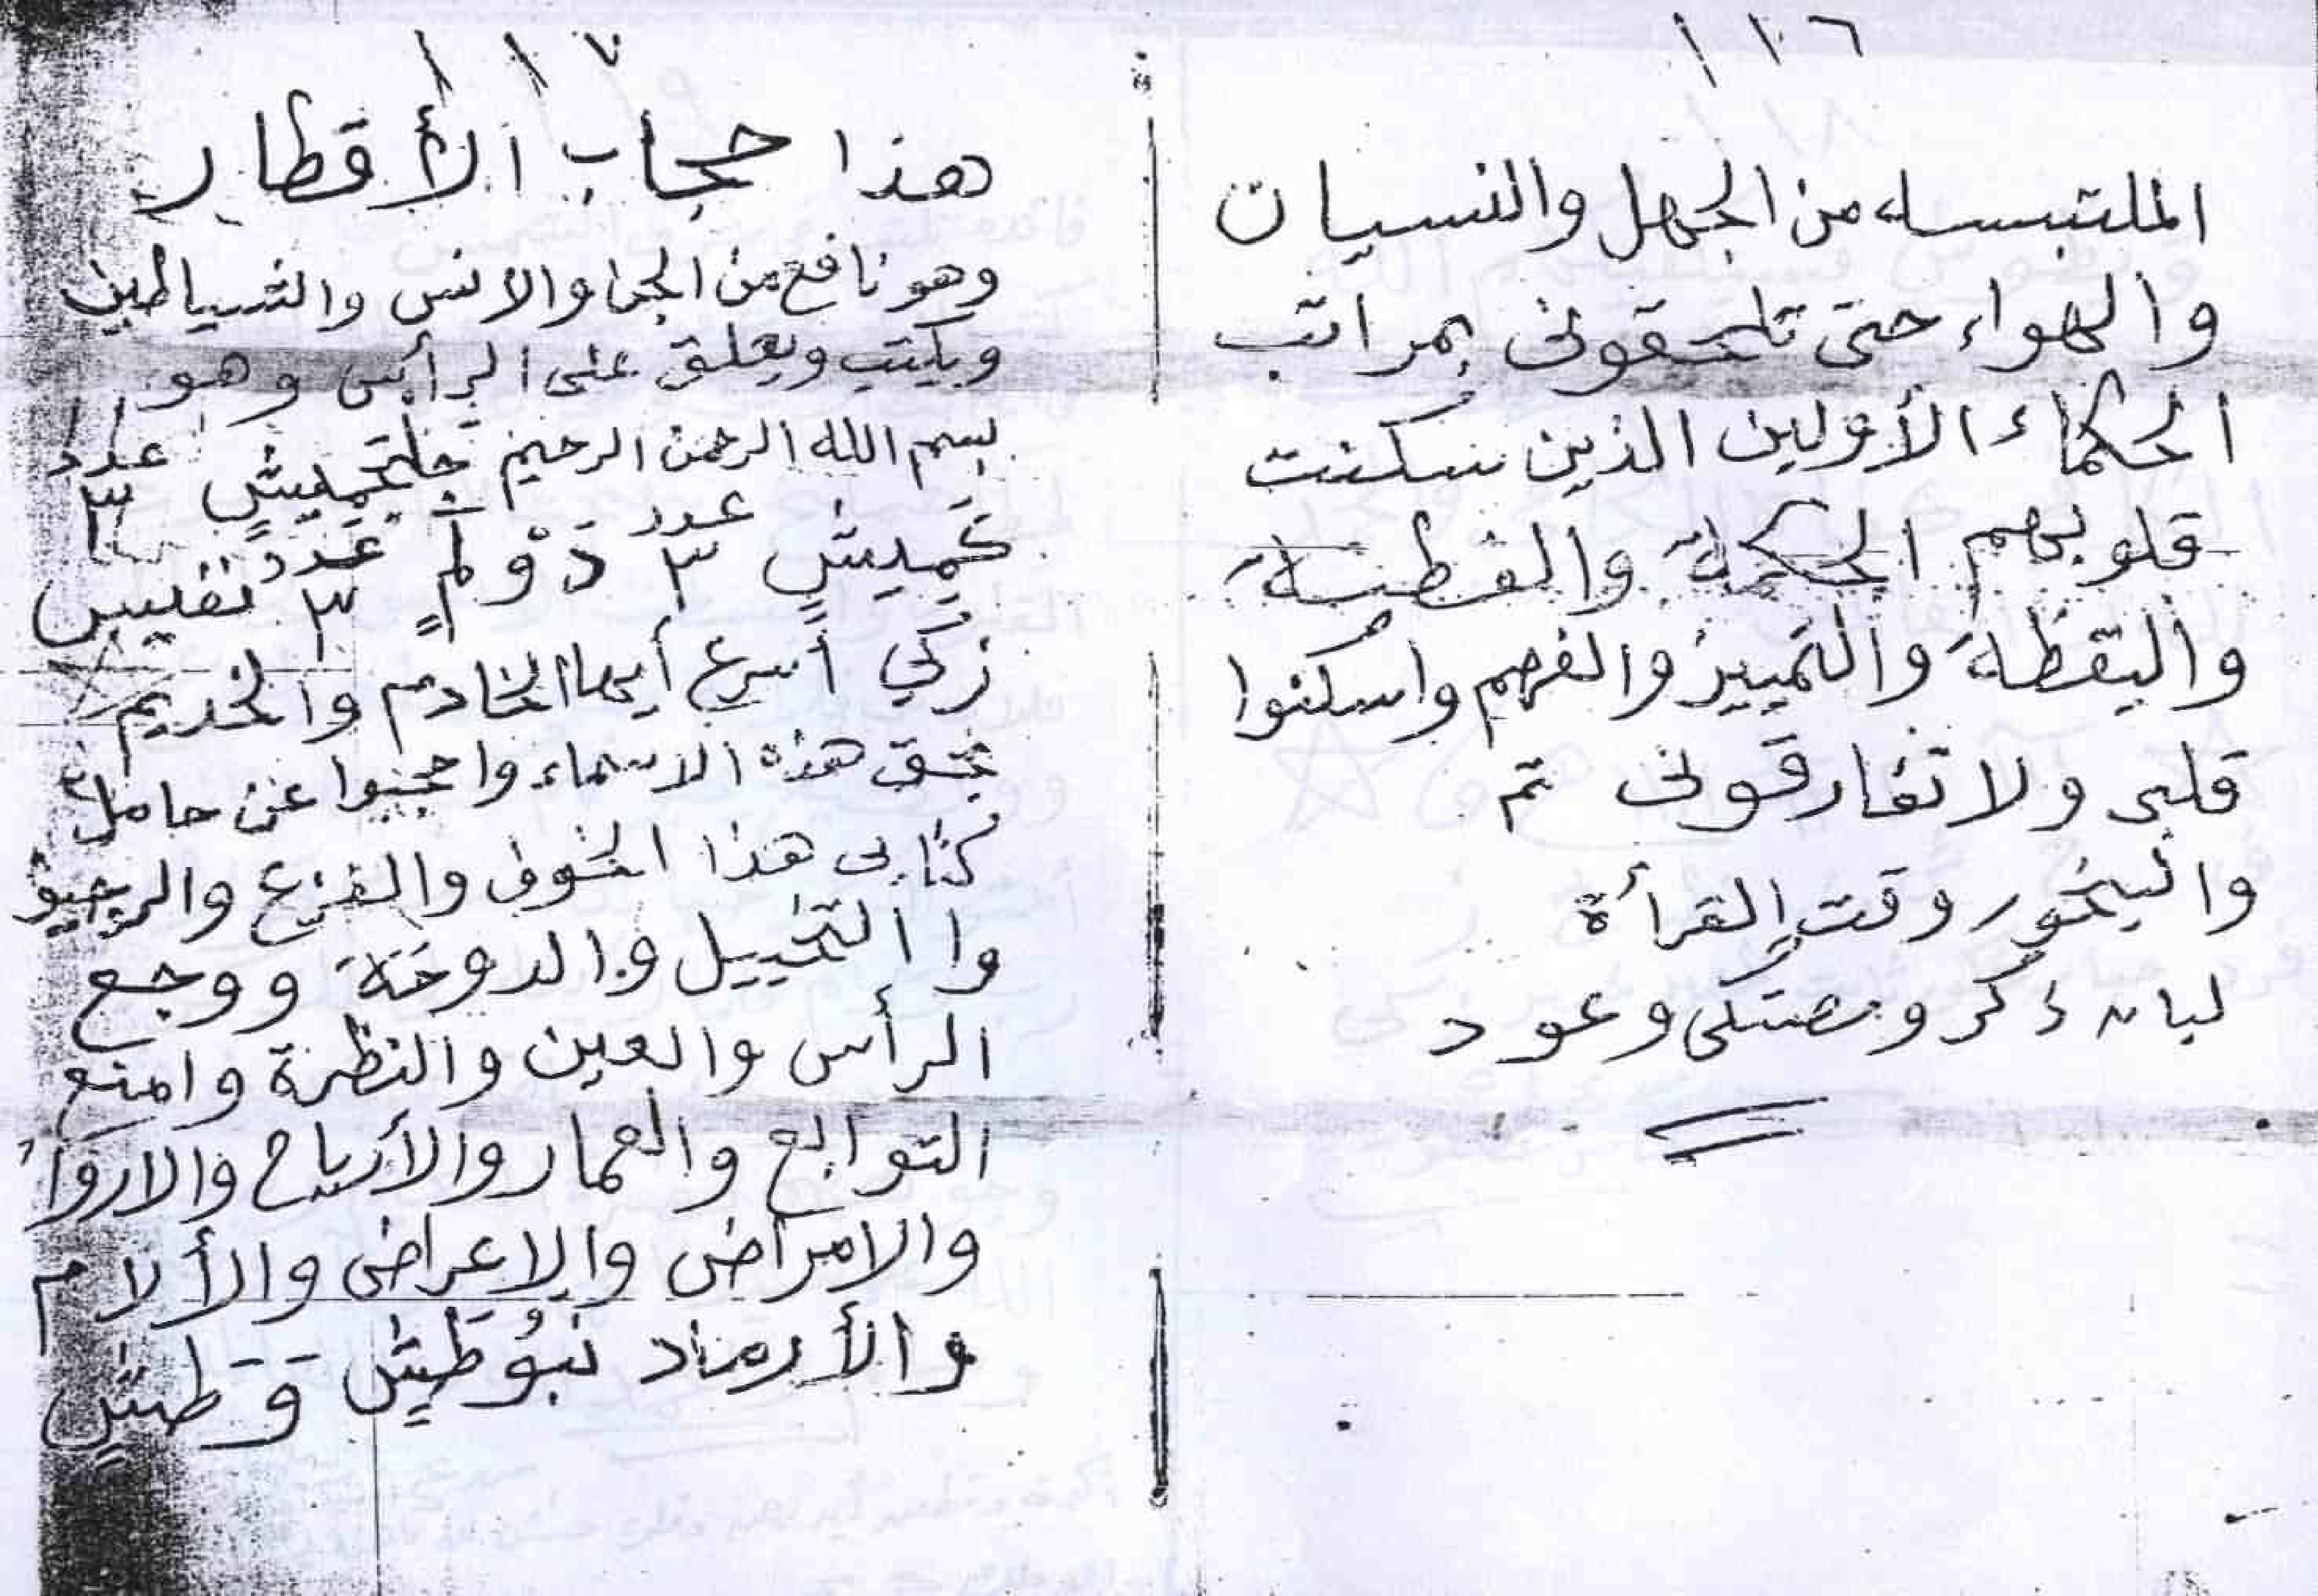 ١١٦
الملتبسه من الجهل والنسيان
والهواء حتى تلحقونى بمراتب
الحكماء الأولين الذين سكنت
قلوبهم الحكمة والفطسة
واليقظة والتمييز والفهم واسكنوا
قلبى ولا تفارقونى تم
والبخور وقت القرأة
لبان ذكر ومصتكى وعود
١١٧
هذا حجاب الأقطار
وهو نافع من الجن والانس والشياطين
ويكتب ويعلق على الرأس وهو
بسم الله الرحمن الرحيم عدد ٣
كميش عدد ٣ دولم عدد ٣ نفيس
زكي أسرع أيها الخادم والخديم
بحق هذه الاسماء واحجبوا عن حامل
كتابى هذا الخوف والفزع
وا التخييل والدوخة ووجع
الرأس والعين والنظرة وامنع
التوابع والعمار والأرياح والاروا
والامراض والاعراض والألام
والأرماد نبوطيش قطيش